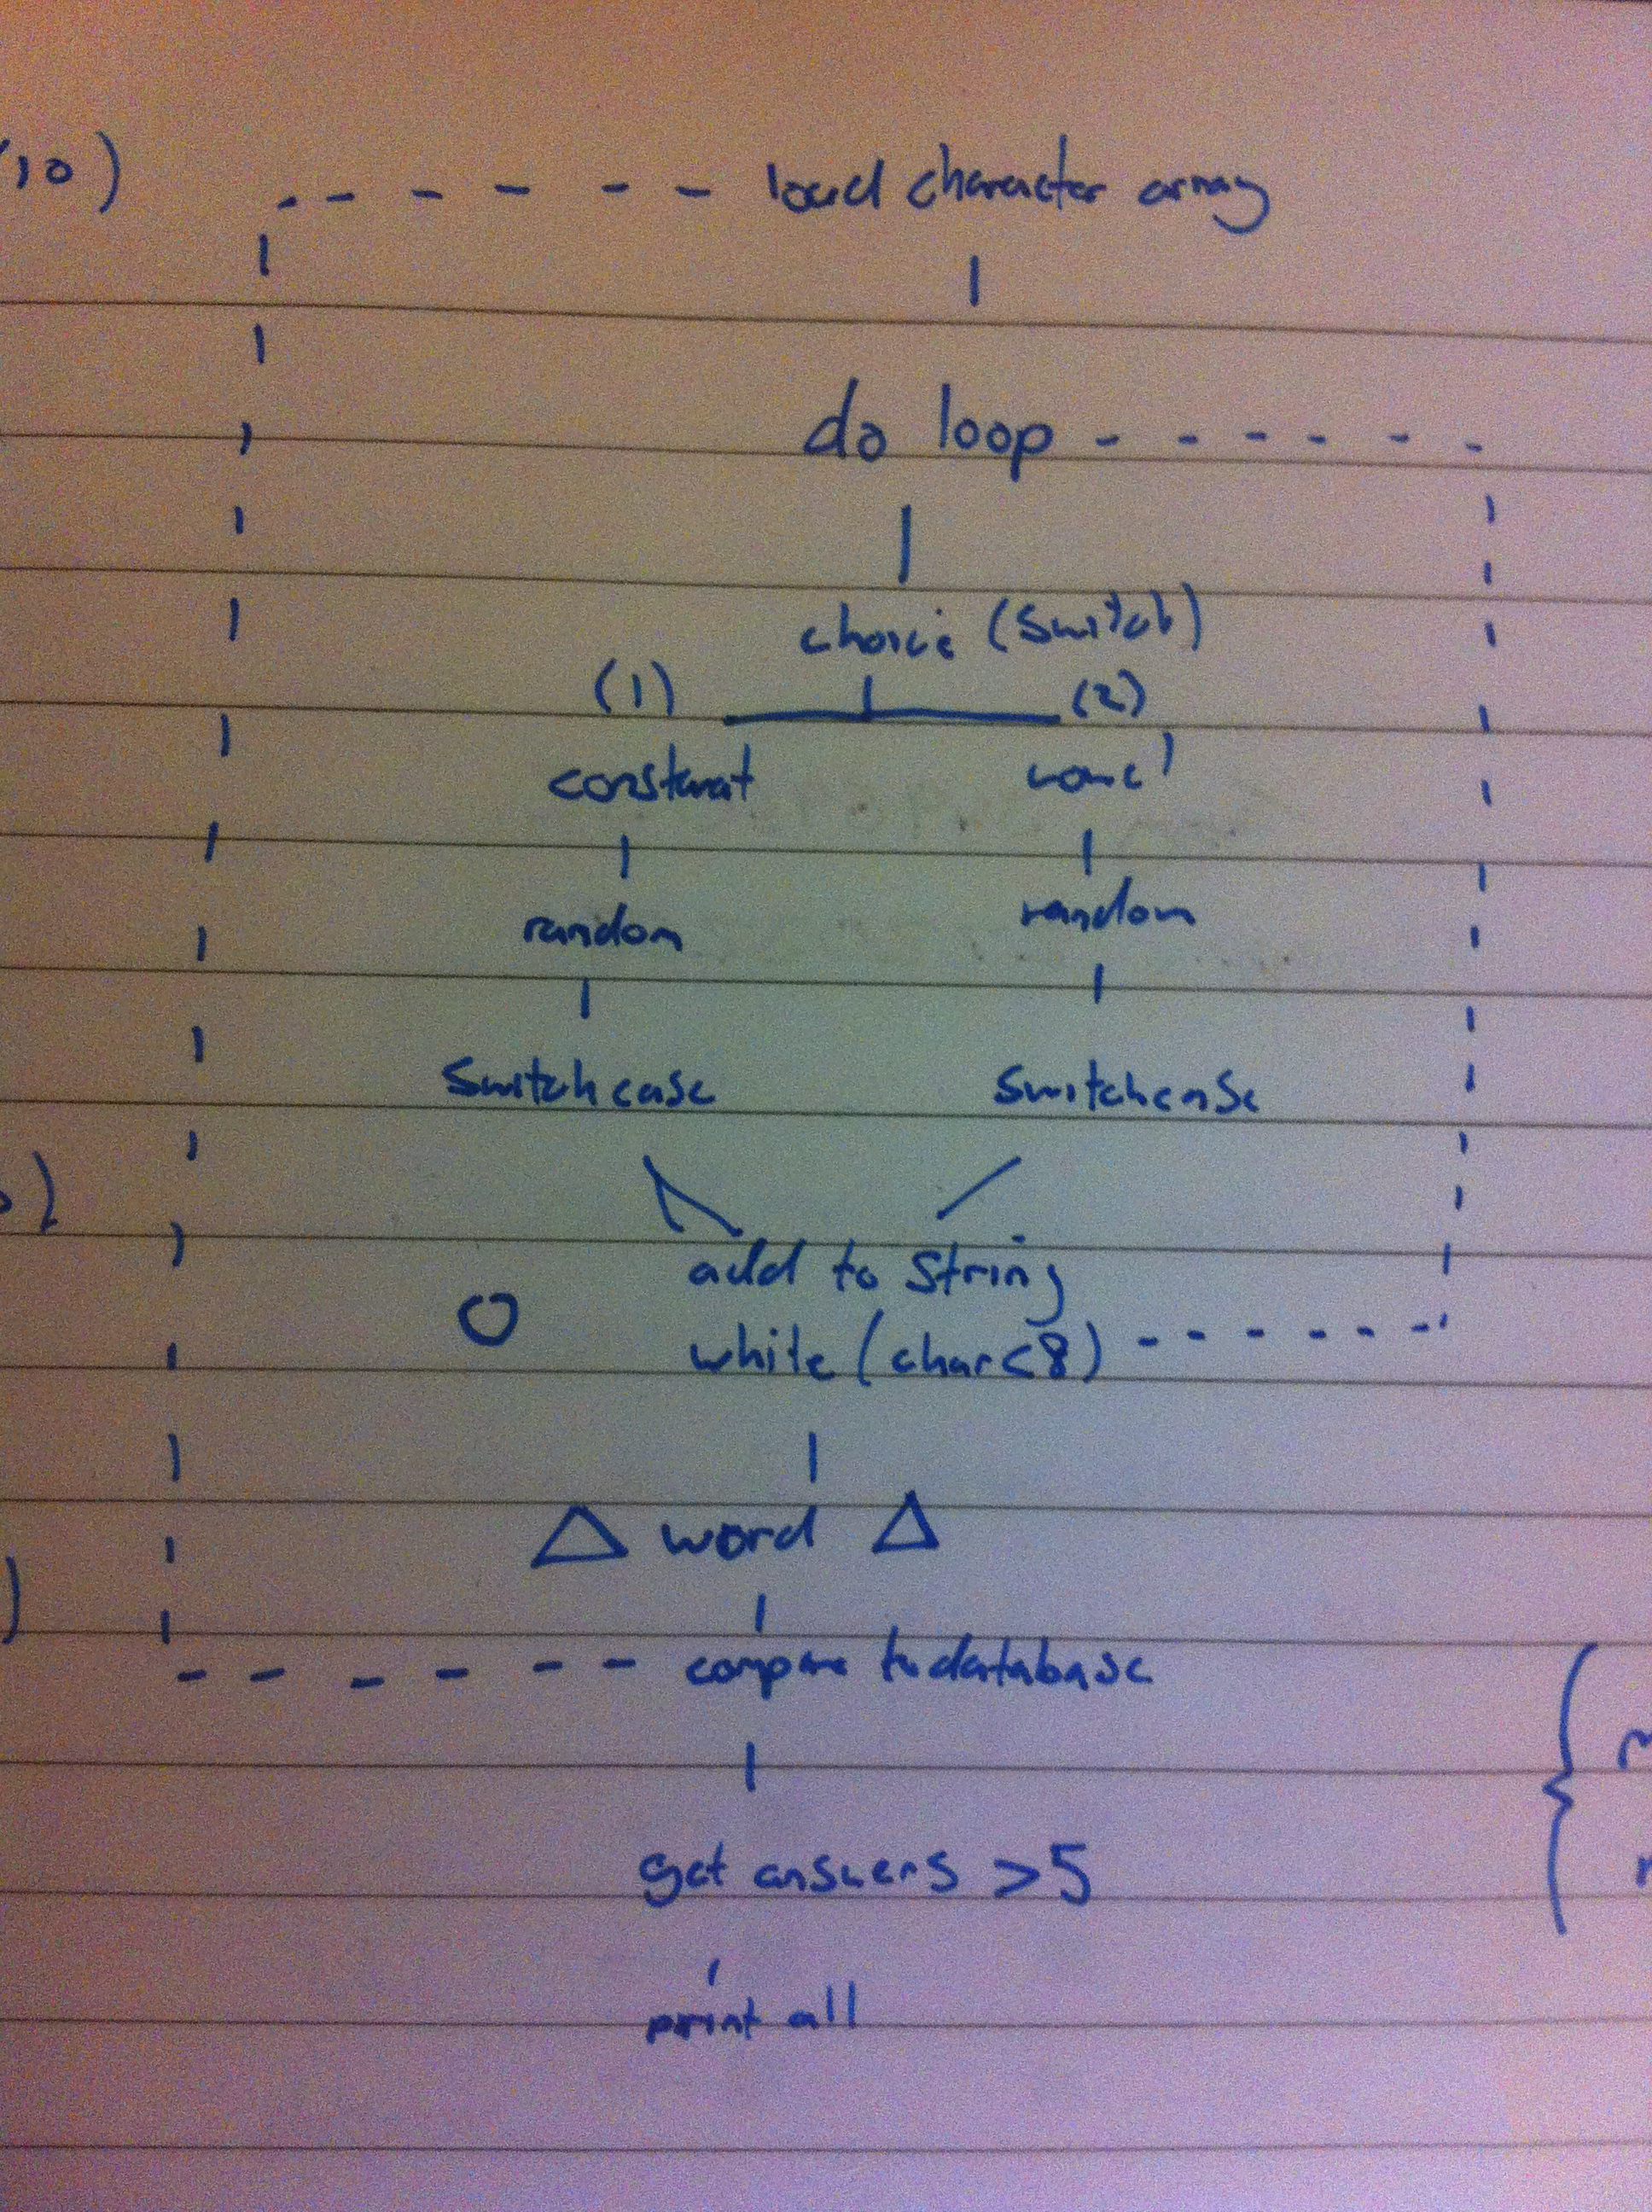 (10)
load character array
do loop
choice (switch)
(1) (2)
constenat
random random
switchcase switchcase
add to string
while (char<8)
△ word △
compare to database
get answers >5
print all